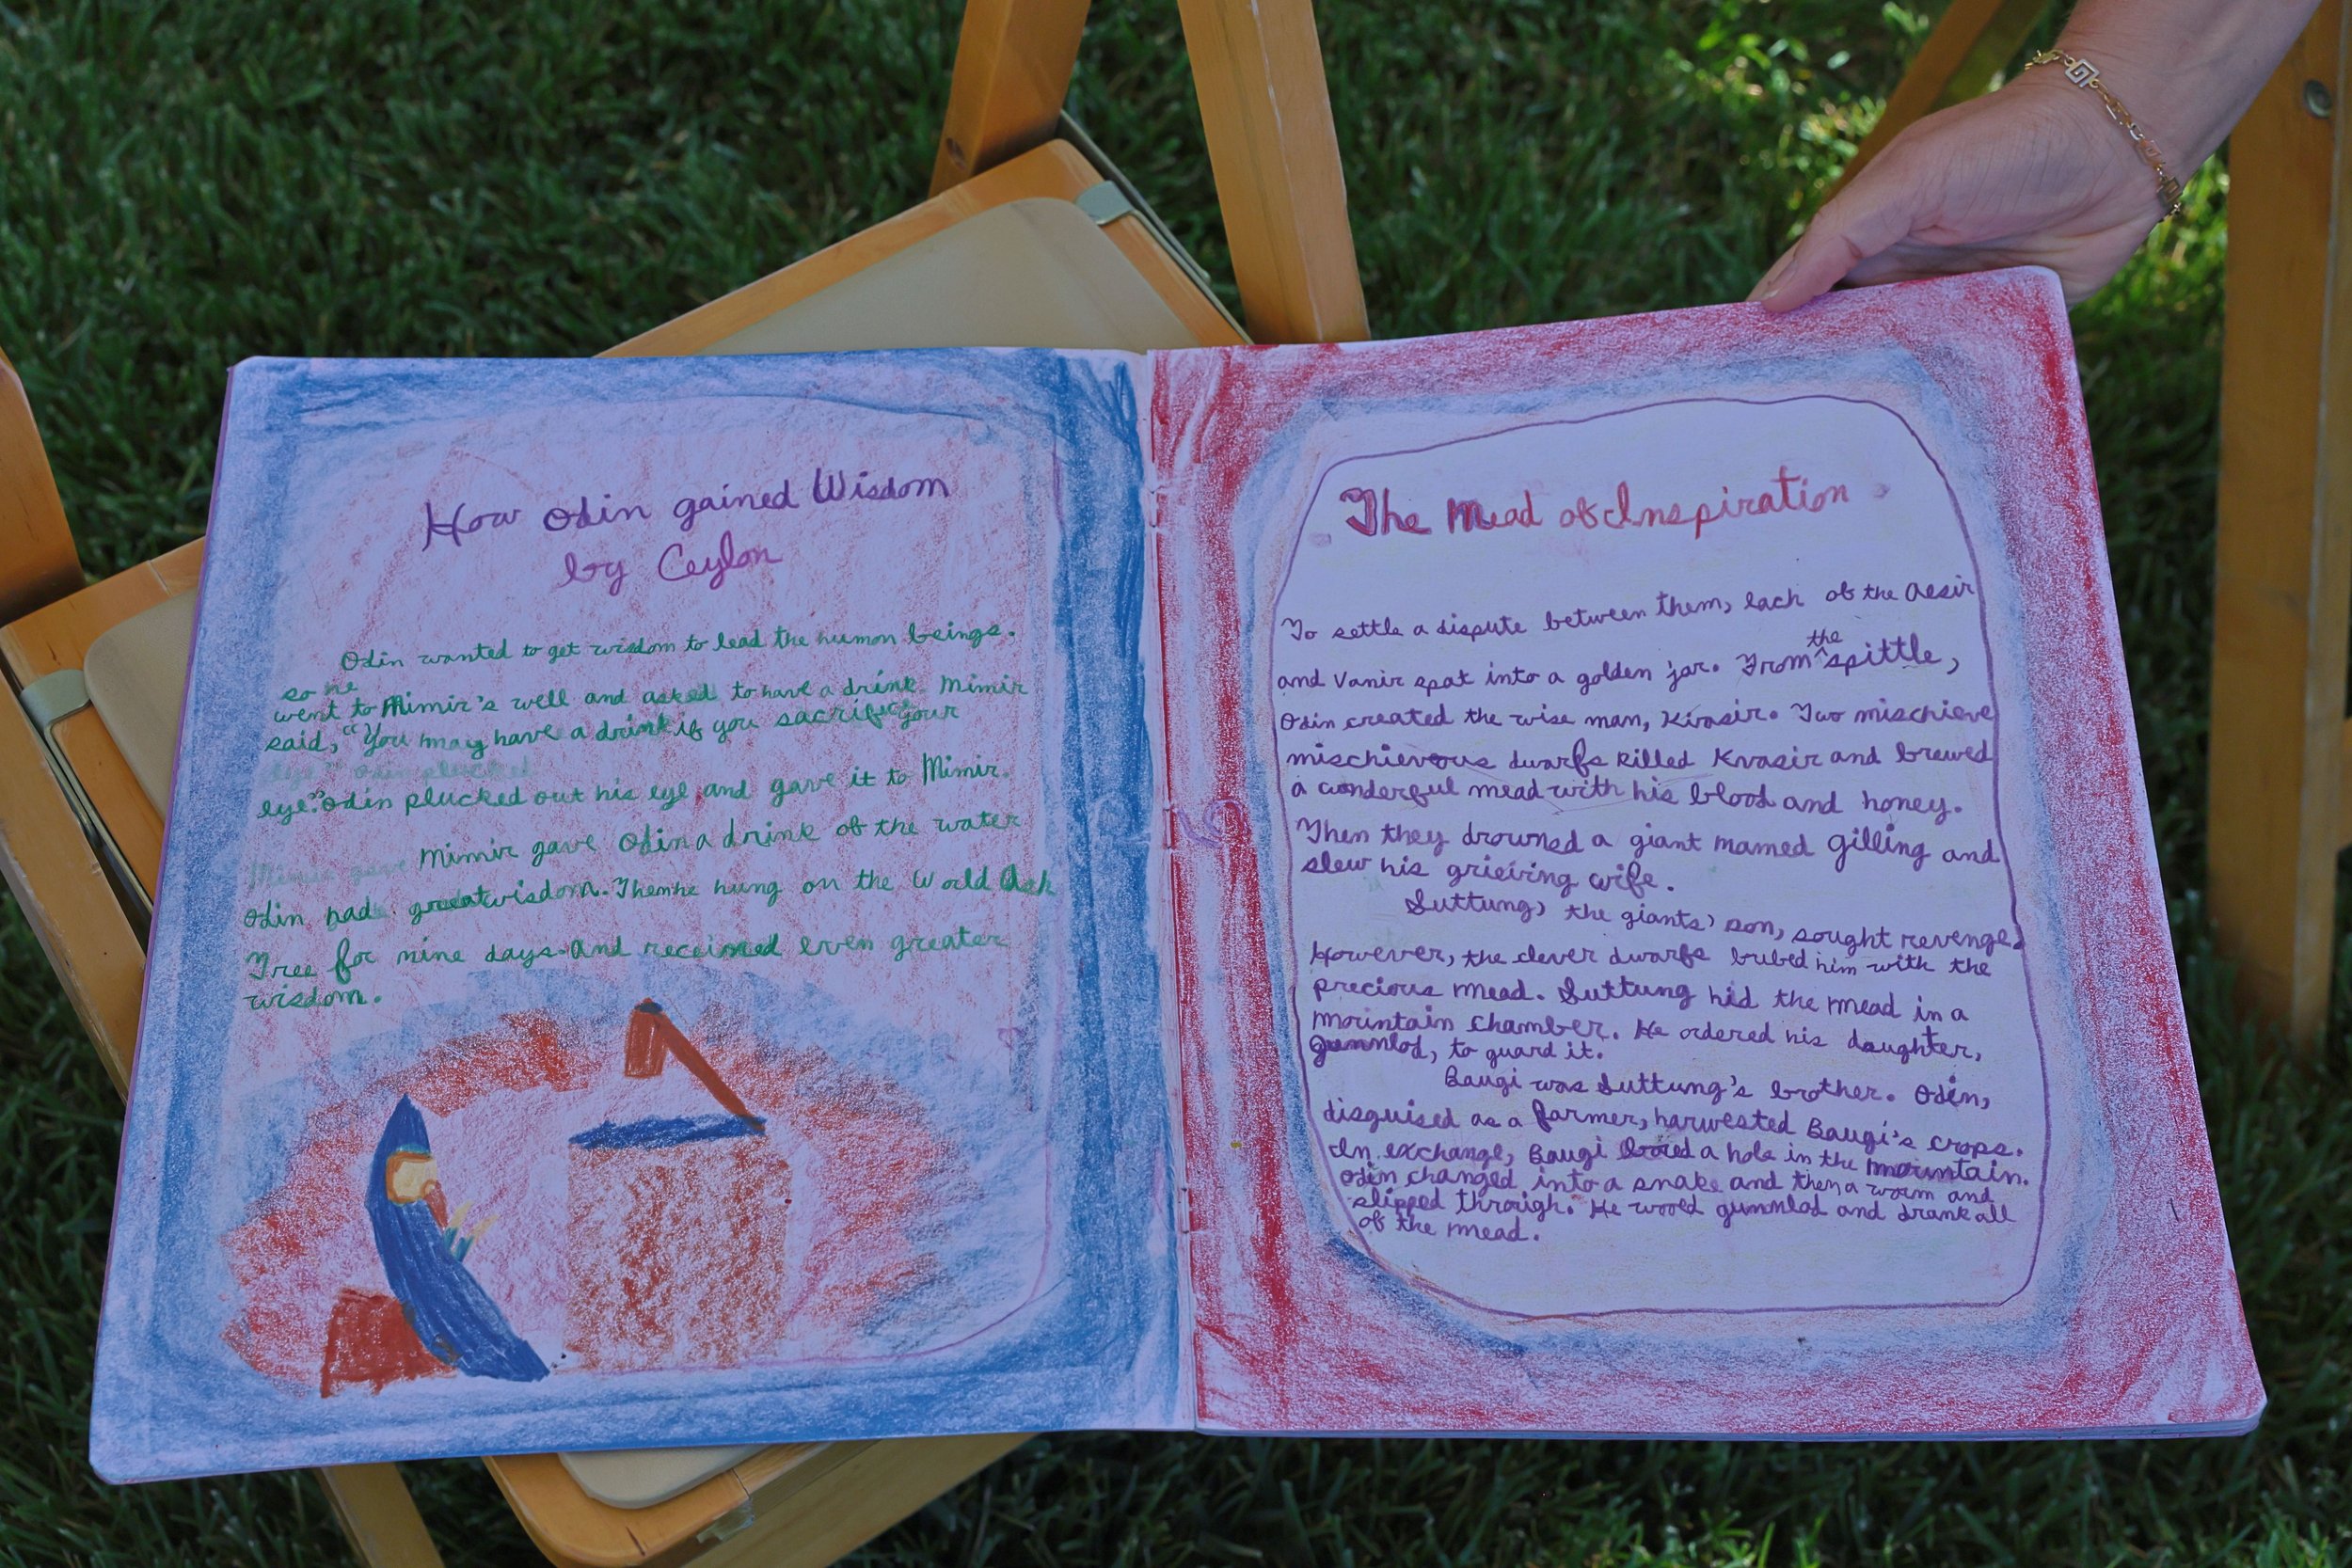 How Odin gained Wisdom
by Ceylon
Odin wanted to get wisdom to lead the human beings.
so he
went to Mimir's well and asked to have a drink. Mimir
said, "You may have a drink if you sacrifice your
eye." Odin plucked
eye." Odin plucked out his eye and gave it to Mimir.
Mimir gave Mimir gave Odin a drink of the water
Odin had great wisdom. Then he hung on the World Ash
Tree for nine days. And received even greater
wisdom.
The Mead of Inspiration
To settle a dispute between them, each of the Aesir
the
and Vanir spat into a golden jar. From ^ spittle,
Odin created the wise man, Kvasir. Two mischieve
mischievous dwarfs killed Kvasir and brewed
a wonderful mead with his blood and honey.
Then they drowned a giant mamed Gilling and
slew his grieving wife.
Suttung, the giants' son, sought revenge.
However, the clever dwarfs bribed him with the
precious mead. Suttung hid the mead in a
mountain chamber. He ordered his daughter,
Gunnlod, to guard it.
Baugi was Suttung's brother. Odin,
disguised as a farmer, harvested Baugi's crops.
In exchange, Baugi bored a hole in the mountain.
Odin changed into a snake and then a worm and
slipped through. He wooed gunnlod and drank all
of the mead.